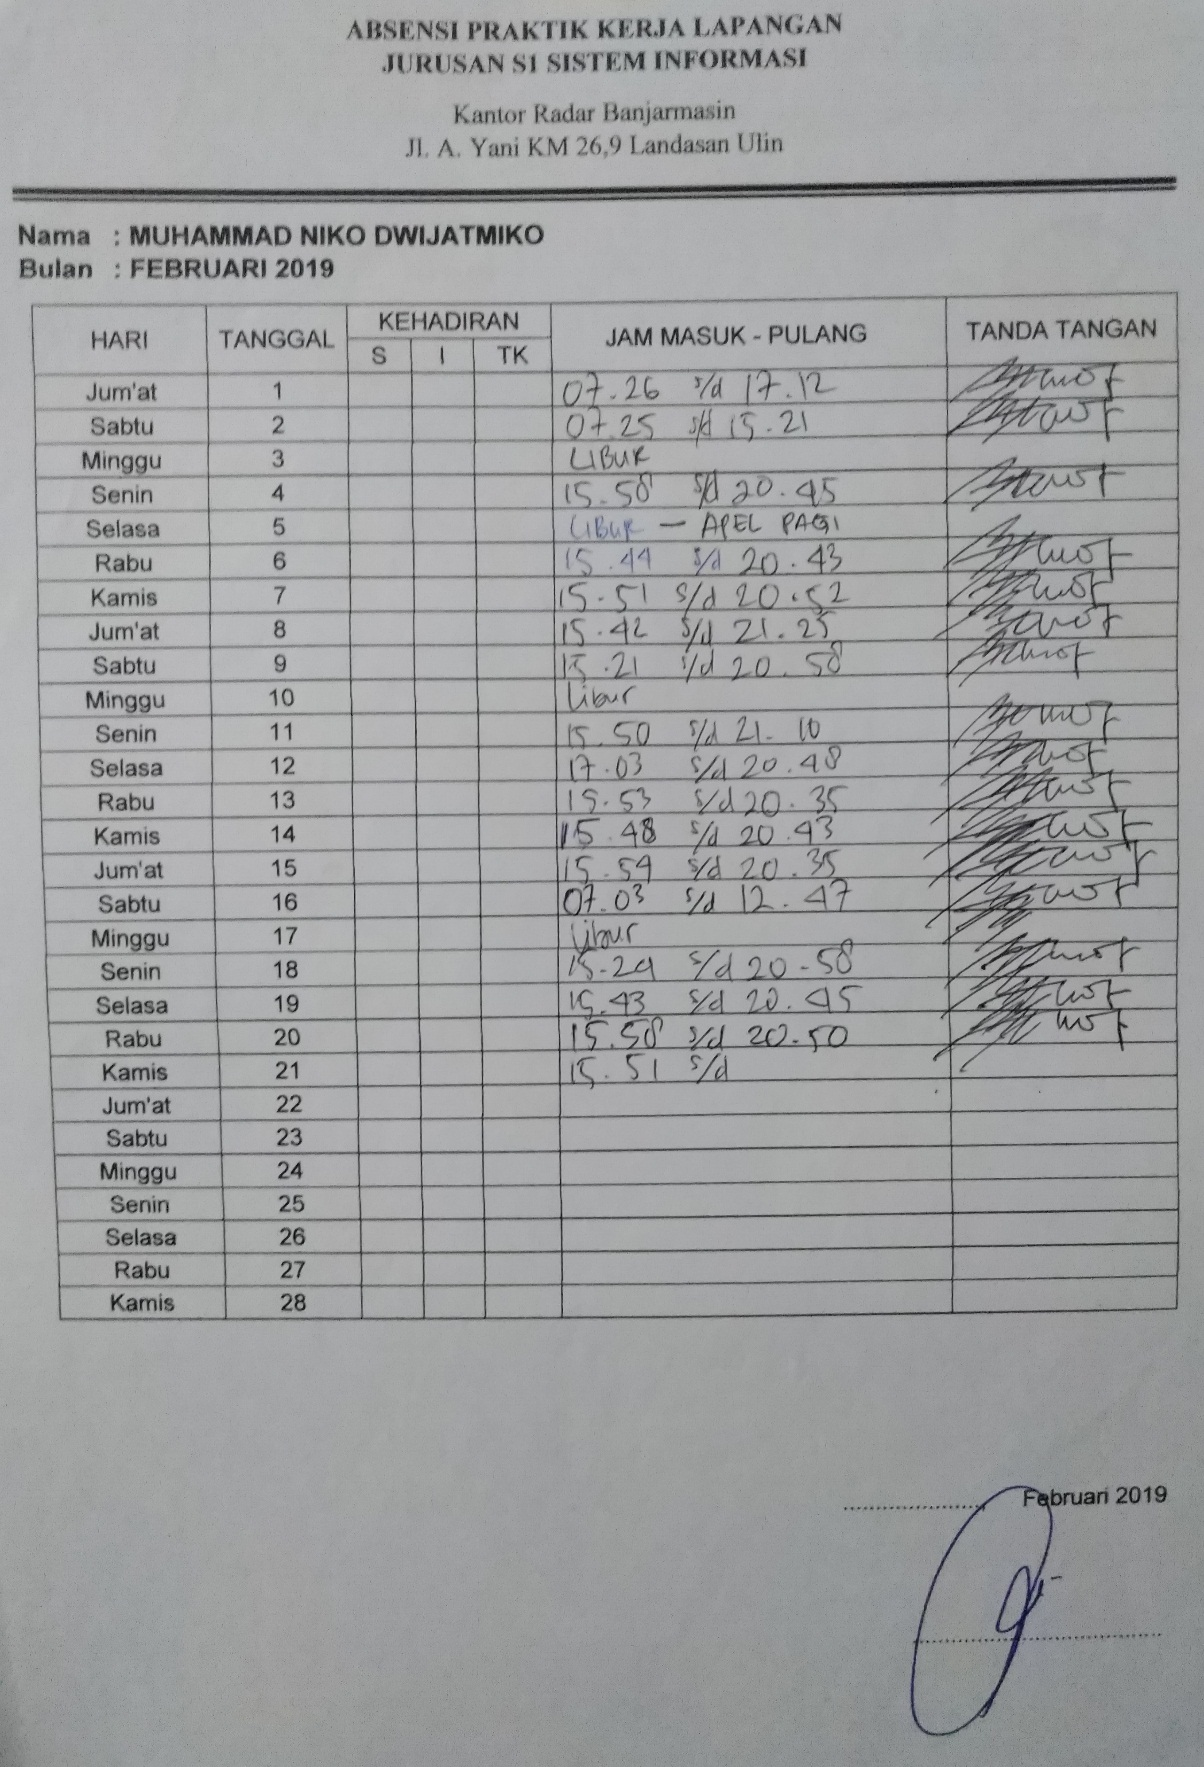 ABSENSI PRAKTIK KERJA LAPANGAN
JURUSAN S1 SISTEM INFORMASI
Kantor Radar Banjarmasin
Jl. A. Yani KM 26,9 Landasan Ulin
Nama : MUHAMMAD NIKO DWIJATMIKO
Bulan : FEBRUARI 2019
HARI TANGGAL KEHADIRAN JAM MASUK - PULANG TANDA TANGAN
S I TK
Jum'at 1 07.26 s/d 17.12
Sabtu 2 07.25 s/d 15.21
Minggu 3 LIBUR
Senin 4 15.58 s/d 20.45
Selasa 5 LIBUR — APEL PAGI
Rabu 6 15.44 s/d 20.43
Kamis 7 15.51 s/d 20.52
Jum'at 8 15.42 s/d 21.25
Sabtu 9 15.21 s/d 20.58
Minggu 10 Libur
Senin 11 15.50 s/d 21.10
Selasa 12 17.03 s/d 20.48
Rabu 13 15.53 s/d 20.35
Kamis 14 15.48 s/d 20.43
Jum'at 15 15.54 s/d 20.35
Sabtu 16 07.03 s/d 12.47
Minggu 17 Libur
Senin 18 15.29 s/d 20.58
Selasa 19 15.43 s/d 20.45
Rabu 20 15.58 s/d 20.50
Kamis 21 15.51 s/d
Jum'at 22
Sabtu 23
Minggu 24
Senin 25
Selasa 26
Rabu 27
Kamis 28
.................... Februari 2019